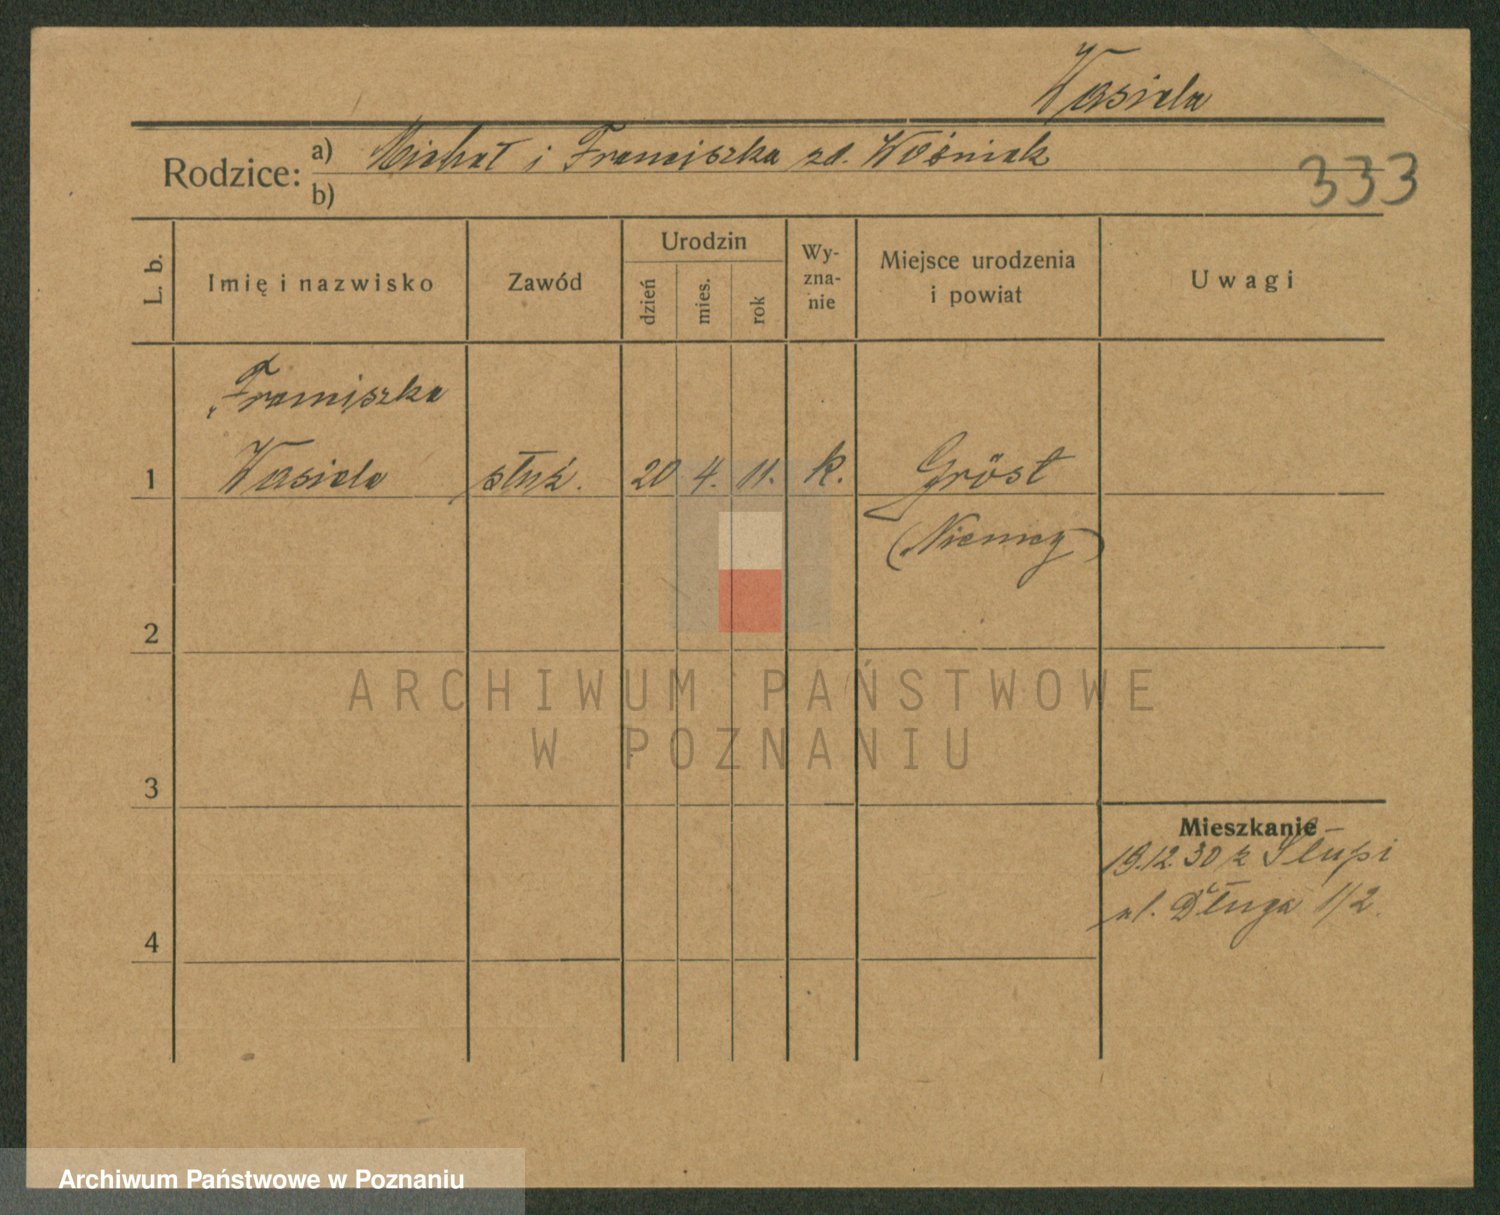 Wasiela
Rodzice: a) Michał i Franciszka zd. Wośniak
333
b)
L. b.
Imię i nazwisko
Zawód
Urodzin
dzień
mies.
rok
Wy-
zna-
nie
Miejsce urodzenia
i powiat
Uwagi
Franciszka
1 Wasiela służ. 20 4. 11. k. Gröst
(Niemcy)
2
ARCHIWUM PAŃSTWOWE
W POZNANIU
3
Mieszkanie
19.12.30 z Słupi
ul. Długa 1/2.
4
Archiwum Państwowe w Poznaniu